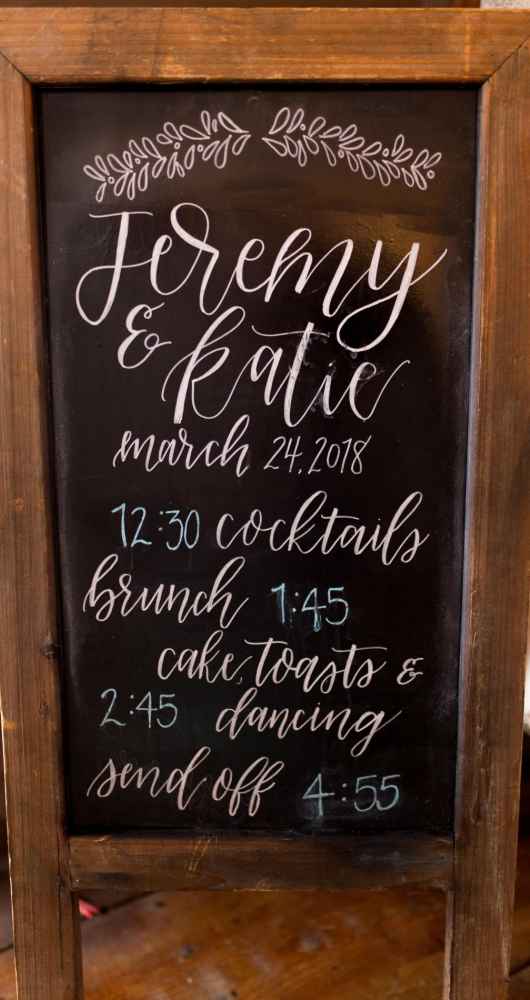 Jeremy
& Katie
march 24, 2018
12:30 cocktails
brunch 1:45
cake, toasts &
2:45 dancing
send off 4:55